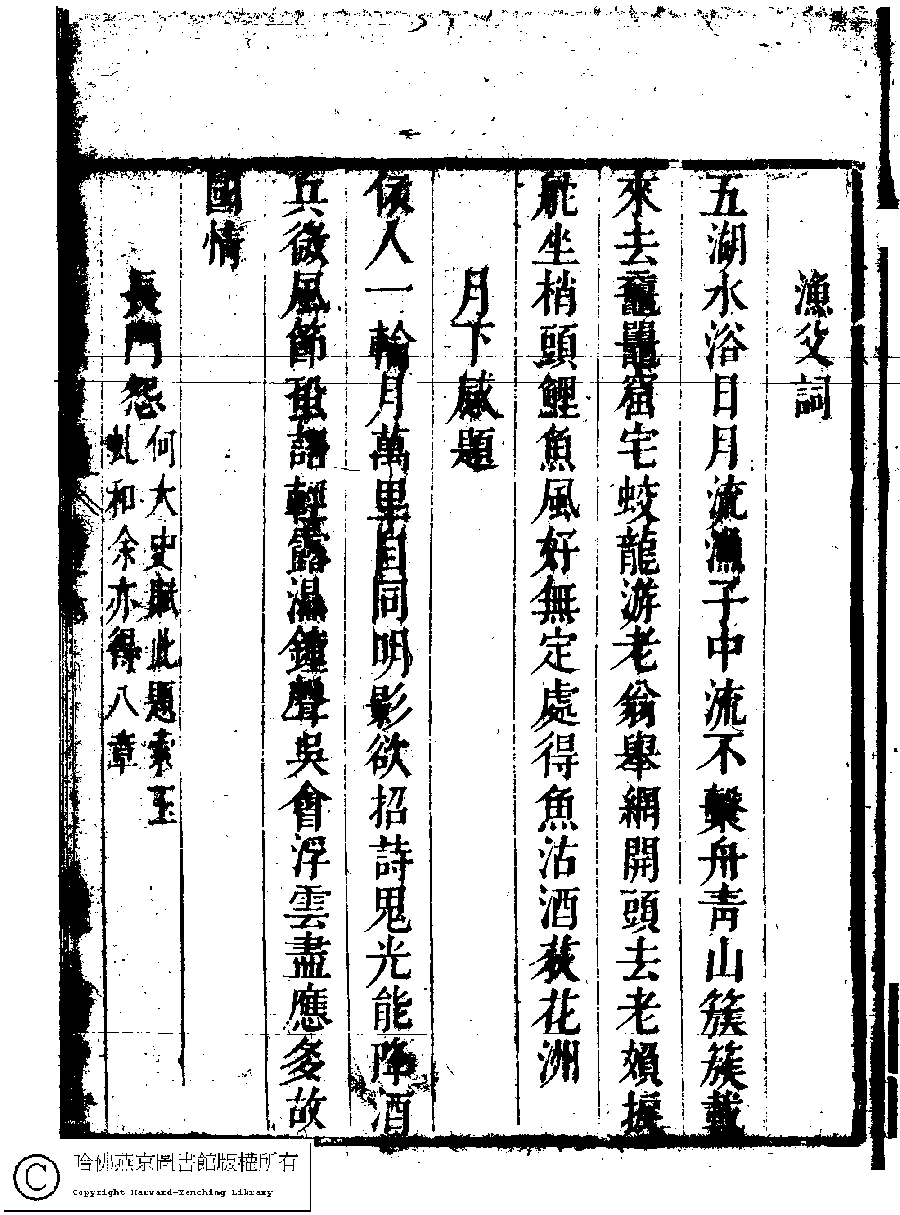 漁父詞
五湖水浴日月流漁子中流不繫舟青山簇簇載
來去竈鼉窟宅蛟龍游老翁舉網開頭去老䫫捩
柁坐梢頭鯉魚風好無定處得魚沽酒荻花洲
月下感題
依人一輪月萬里自同明影欲招詩鬼光能降酒
兵微風節蛩語輕露濕鐘聲吳會浮雲盡應多故
國情
長門怨 何大史賦此題索王
虬和余亦得八章
哈佛燕京圖書館版權所有
Copyright Harvard-Yenching Library